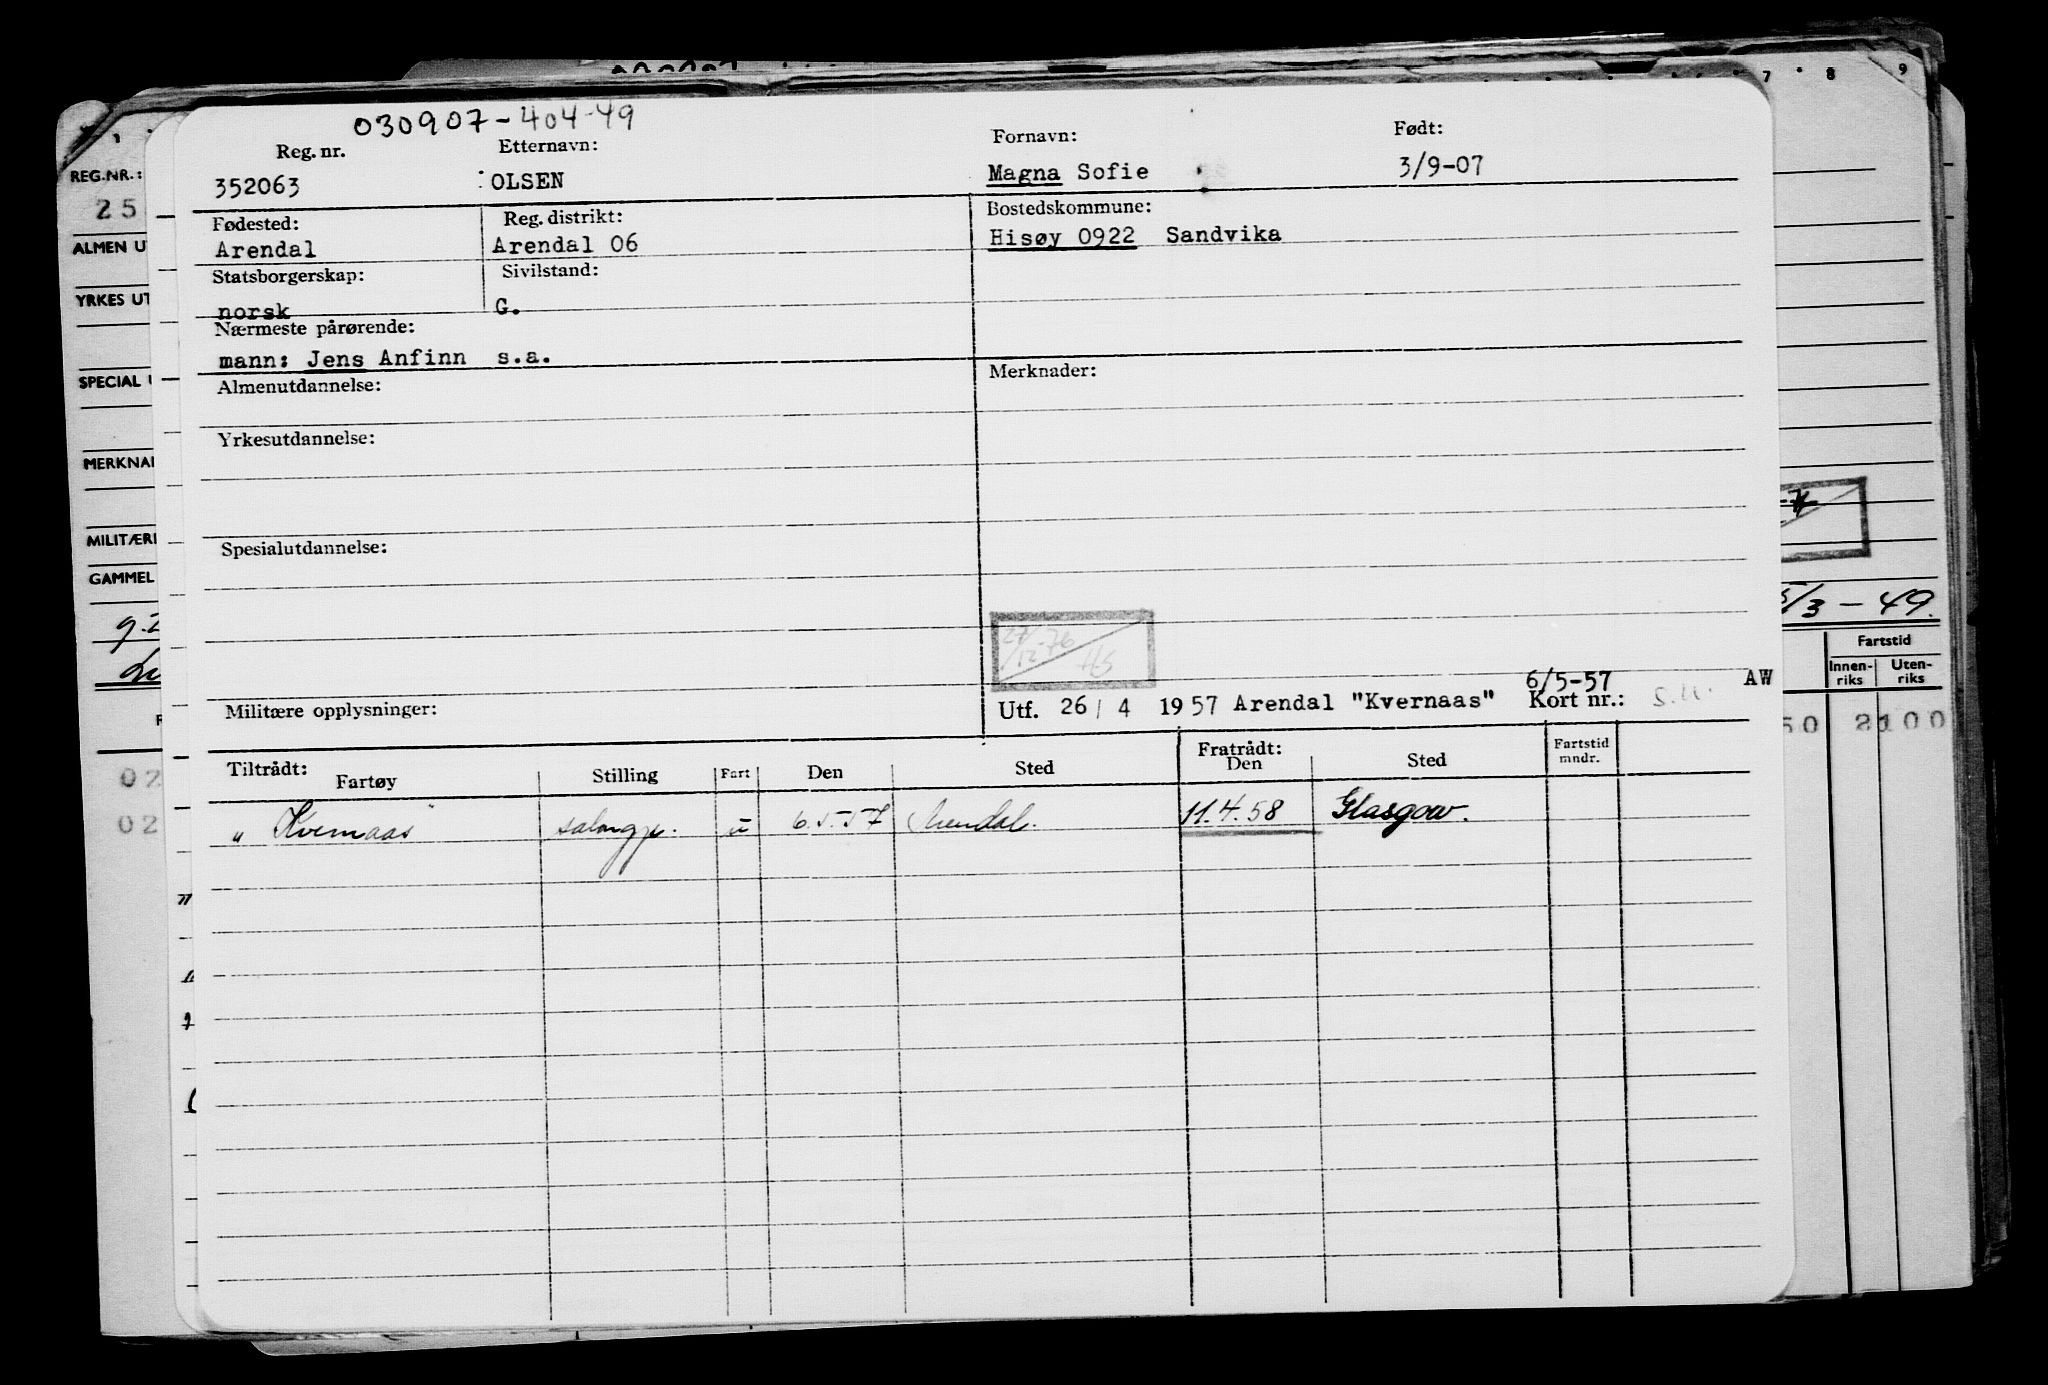 7 8 9
030907-404-49
Reg. nr. Etternavn: Fornavn: Født:
352063 OLSEN Magna Sofie 3/9-07
Fødested: Reg. distrikt: Bostedskommune:
Arendal Arendal 06 Hisøy 0922 Sandvika
Statsborgerskap: Sivilstand:
norsk G.
Nærmeste pårørende:
mann: Jens Anfinn s.a.
Almenutdannelse: Merknader:
Yrkesutdannelse:
Spesialutdannelse:
27/12-76 HS
6/5-57 AW
Militære opplysninger: Utf. 26/4 1957 Arendal "Kvernaas" Kort nr.:
Tiltrådt: Fratrådt:
Fartøy Stilling Fart Den Sted Den Sted Fartstid mndr.
"Kvernaas" salongp. u 6.5.57 Arendal. 11.4.58 Glasgow.
REG.NR.:
25
ALMEN U
YRKES UT
SPECIAL U
MERKNA
MILITÆR
GAMMEL
02
02
/3 - 49.
Fartstid
Innen-riks Uten-riks
50 2100